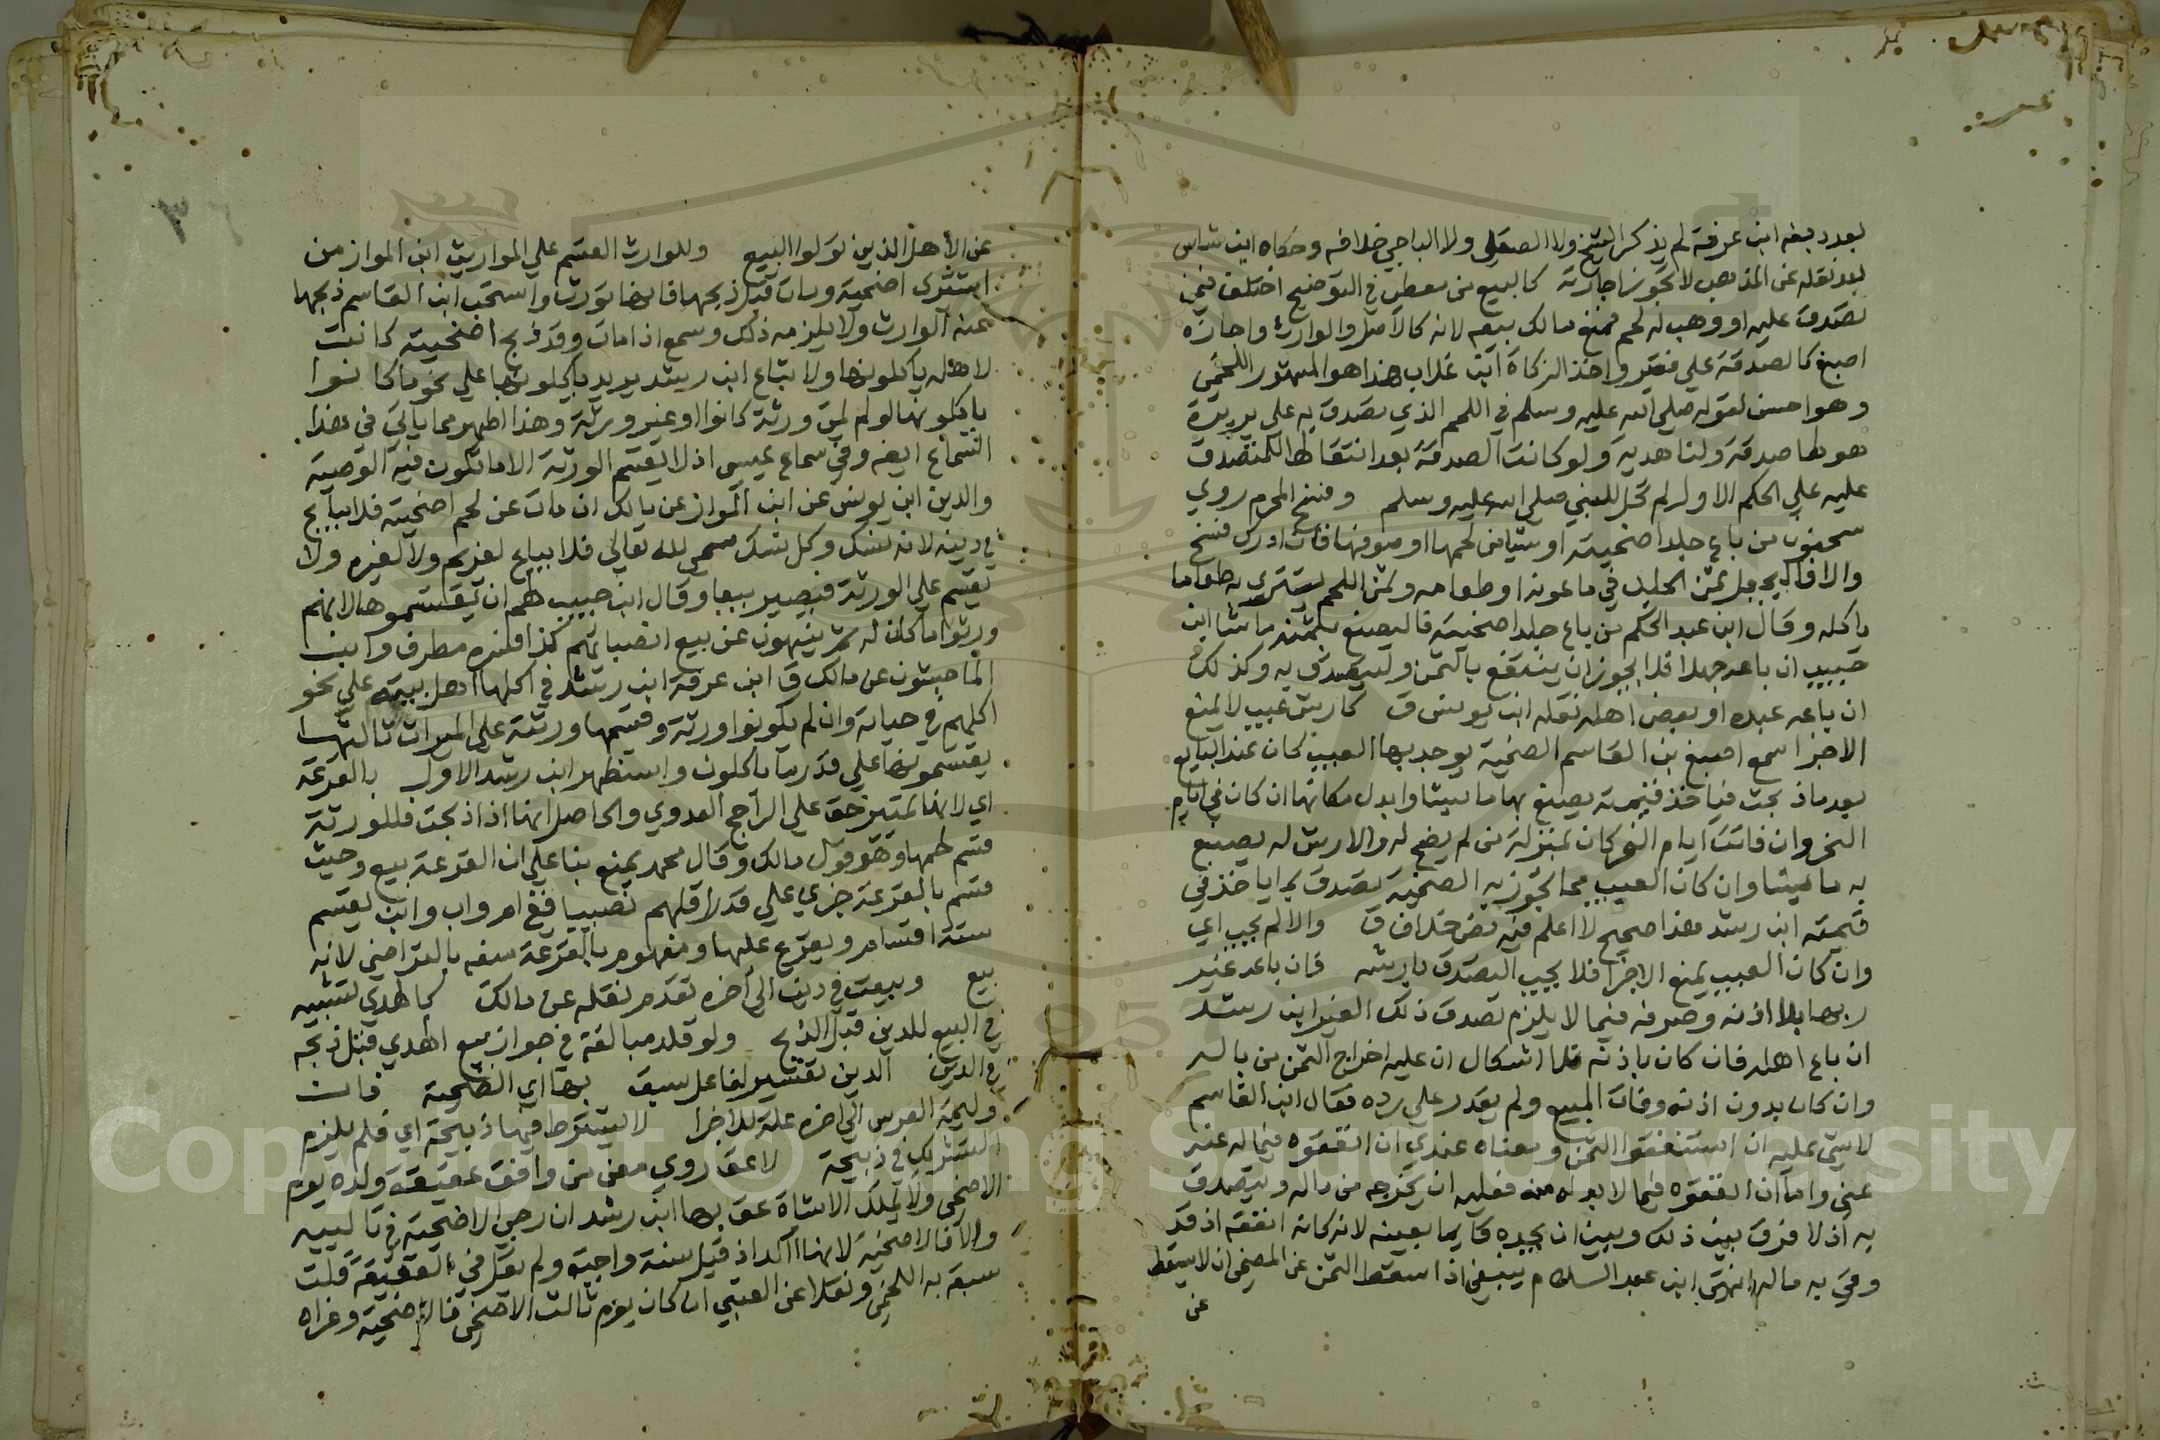 بعد دبغه ابن عرفة لم يذكر الشيخ ولا الصقلي ولا الباجي خلافه وحكاه ابن شاس
بعد نقله عن المذهب لا تجوز اجارته كالبيع من معطي في التوضيح اختلف فيمن
تصدق عليه او وهب له لحم فمنع مالك بيعه لانه كالاصل والوارث واجازه
اصبغ كالصدقة على فقير واخذ الزكاة ابن غلاب هذا هو المشهور اللخمي
وهو احسن لقوله صلى الله عليه وسلم في اللحم الذي تصدق به على بريرة
هو لها صدقة ولنا هدية ولو كانت الصدقة بعد انتقالها للمتصدق
عليه على الحكم الاول لم تحل للنبي صلى الله عليه وسلم وفسخ المحرم روي
سحنون من باع جلد اضحيته او شيا من لحمها او صوفها فان ادرك فسخ
والا فاليجعل ثمن الجلد في ماعونه او طعامه وثمن اللحم يشتري به طعاما
ياكله وقال ابن عبد الحكم من باع جلد اضحيته فاليصنع بثمنه ما شا ابن
حبيب ان باعه جهلا فلا يجوز ان ينتفع بالثمن وليصدق به وكذلك
ان باعه عبده او بعض اهله نقله ابن يونس ق كارش عيب لا يمنع
الاجزا سمع اصبغ بن القاسم الضحية يوجد بها العيب كان عند البايع
بعد ما ذبحت فياخذ قيمته يصنع بها ما يشا وابدل مكانها ان كان في ايام
النحر وان فاتت ايام النحر كان بمنزلة من لم يضح له والارش له يصنع
به ما يشا وان كان العيب مما تجوز به الضحية تصدق بما ياخذ في
قيمته ابن رشد هذا صحيح لا اعلم فيه نص خلاف ق والا لم يجب اي
وان كان العيب يمنع الاجزا فلا يجب التصدق بارشه فان باعه غير
ربها بلا اذنه وصرفه فيما لا يلزم تصدق ذلك الغير ابن رشد
ان باع اهله فان كان باذنه فلا اشكال ان عليه اخراج الثمن من ماله
وان كان بدون اذنه وفات المبيع ولم يقدر على رده فقال ابن القاسم
لا شي عليه ان استنفقوا الثمن ومعناه عندي ان انفقوه فيما له عنه
غنى واما ان انفقوه فيما لا بد له منه فعليه ان يخرجه من ماله ويتصدق
به اذ لا فرق بين ذلك وبين ان يجده قايما بعينه لانه كانه انفقه اذ قد
وقي به ماله انتهى ابن عبد السلام ينبغي اذا سقط الثمن عن المضحي ان لا يسقط
عن
عن الاهل الذين تولوا البيع وللوارث القسم على المواريث ابن المواز من
اشترى اضحية ومات قبل ذبحها فانها تورث واستحب ابن القاسم ذبحها
عنه الوارث ولا يلزمه ذلك وسمع اذا مات وقد ذبح اضحيته كانت
لاهله ياكلونها ولا تباع ابن رشد يريد ياكلونها على نحو ما كانوا
ياكلونها لو لم يمت ورثة كانوا او غير ورثة وهذا اظهر مما ياتي في هذا
السماع ايضه وفي سماع عيسى اذ لا يقسم الورثة الا ما تكون فيه الوصية
والدين ابن يونس عن ابن المواز عن مالك ان مات عن لحم اضحيته فلا يباع
في دينه لانه نسك وكل نسك سمي لله تعالى فلا يباع لغريم ولا لغيره ولا
يقسم على الورثة فيصير بيعا وقال ابن حبيب لهم ان يقتسموها لانهم
ورثوا ما كان له ثم ينهون عن بيع انصبائهم كذا فسره مطرف وابن
الماجشون عن مالك ق ابن عرفة ابن رشد في اكلها اهل بيته على نحو
اكلهم في حياته وان لم يكونوا ورثة وقسمها ورثته على الميراث ثالثها
يقسمونها على قدر ما ياكلون واستظهر ابن رشد الاول بالقرعة
اي لانها تمييز حق على الراجح العدوي والحاصل انها اذا ذبحت فللورثة
قسم لحمها وهو قول مالك وقال محمد يمنع بنا على ان القرعة بيع وحيث
قسم بالقرعة جزي على قدر اقلهم نصيبا ففي ام واب وابن يقسم
ستة اقسام ويقرع عليها ومفهوم بالقرعة منعه بالتراضي لانه
بيع وبيعت في دين الى اخره تقدم نقله عن مالك كالهدي تشبيه
في البيع للدين قبل الذبح ولو قلد مبالغة في جواز بيع الهدي قبل ذبحه
في الدين الدين تفسير لفاعل سبق بها اي الضحية فات
وليمة العرس الى اخره علة للاجزا لا يشترط فيها ذبيحة اي فلم يلزم
التشريك في ذبيحة لا عق روي معن من وافق عقيقة ولده يوم
الاضحى ولا يملك الا شاة عق بها ابن رشد ان رجى الاضحية في تالييه
والا فالاضحية لانها اآكد اذ قيل سنة واجبة ولم يقل في العقيقة قلت
سبقه به اللخمي ونقلا عن العتبي ان كان يوم ثالث الاضحى فالاضحية وعزاه